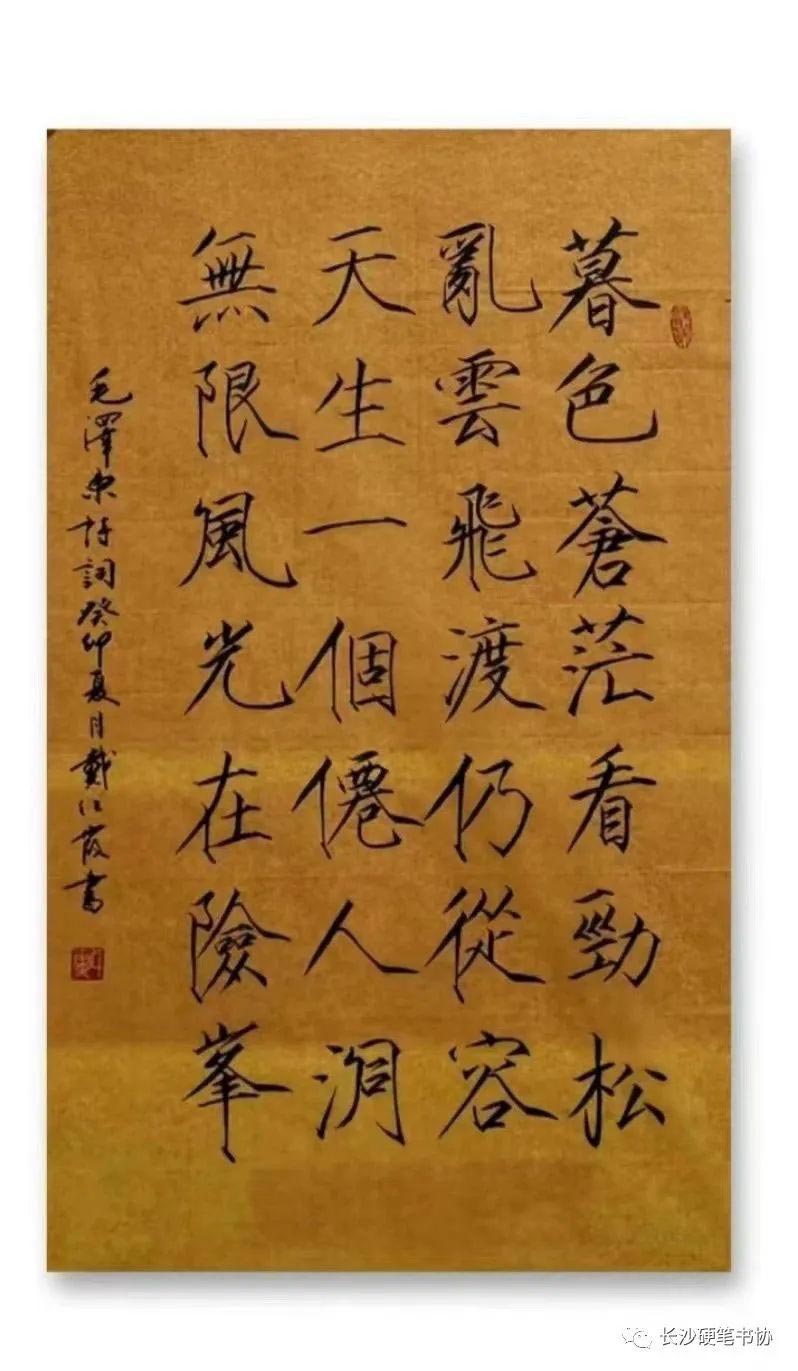 暮色蒼茫看勁松
亂雲飛渡仍從容
天生一個僊人洞
無限風光在險峯
毛澤東詩詞癸卯夏月戴江霞書
长沙硬笔书协